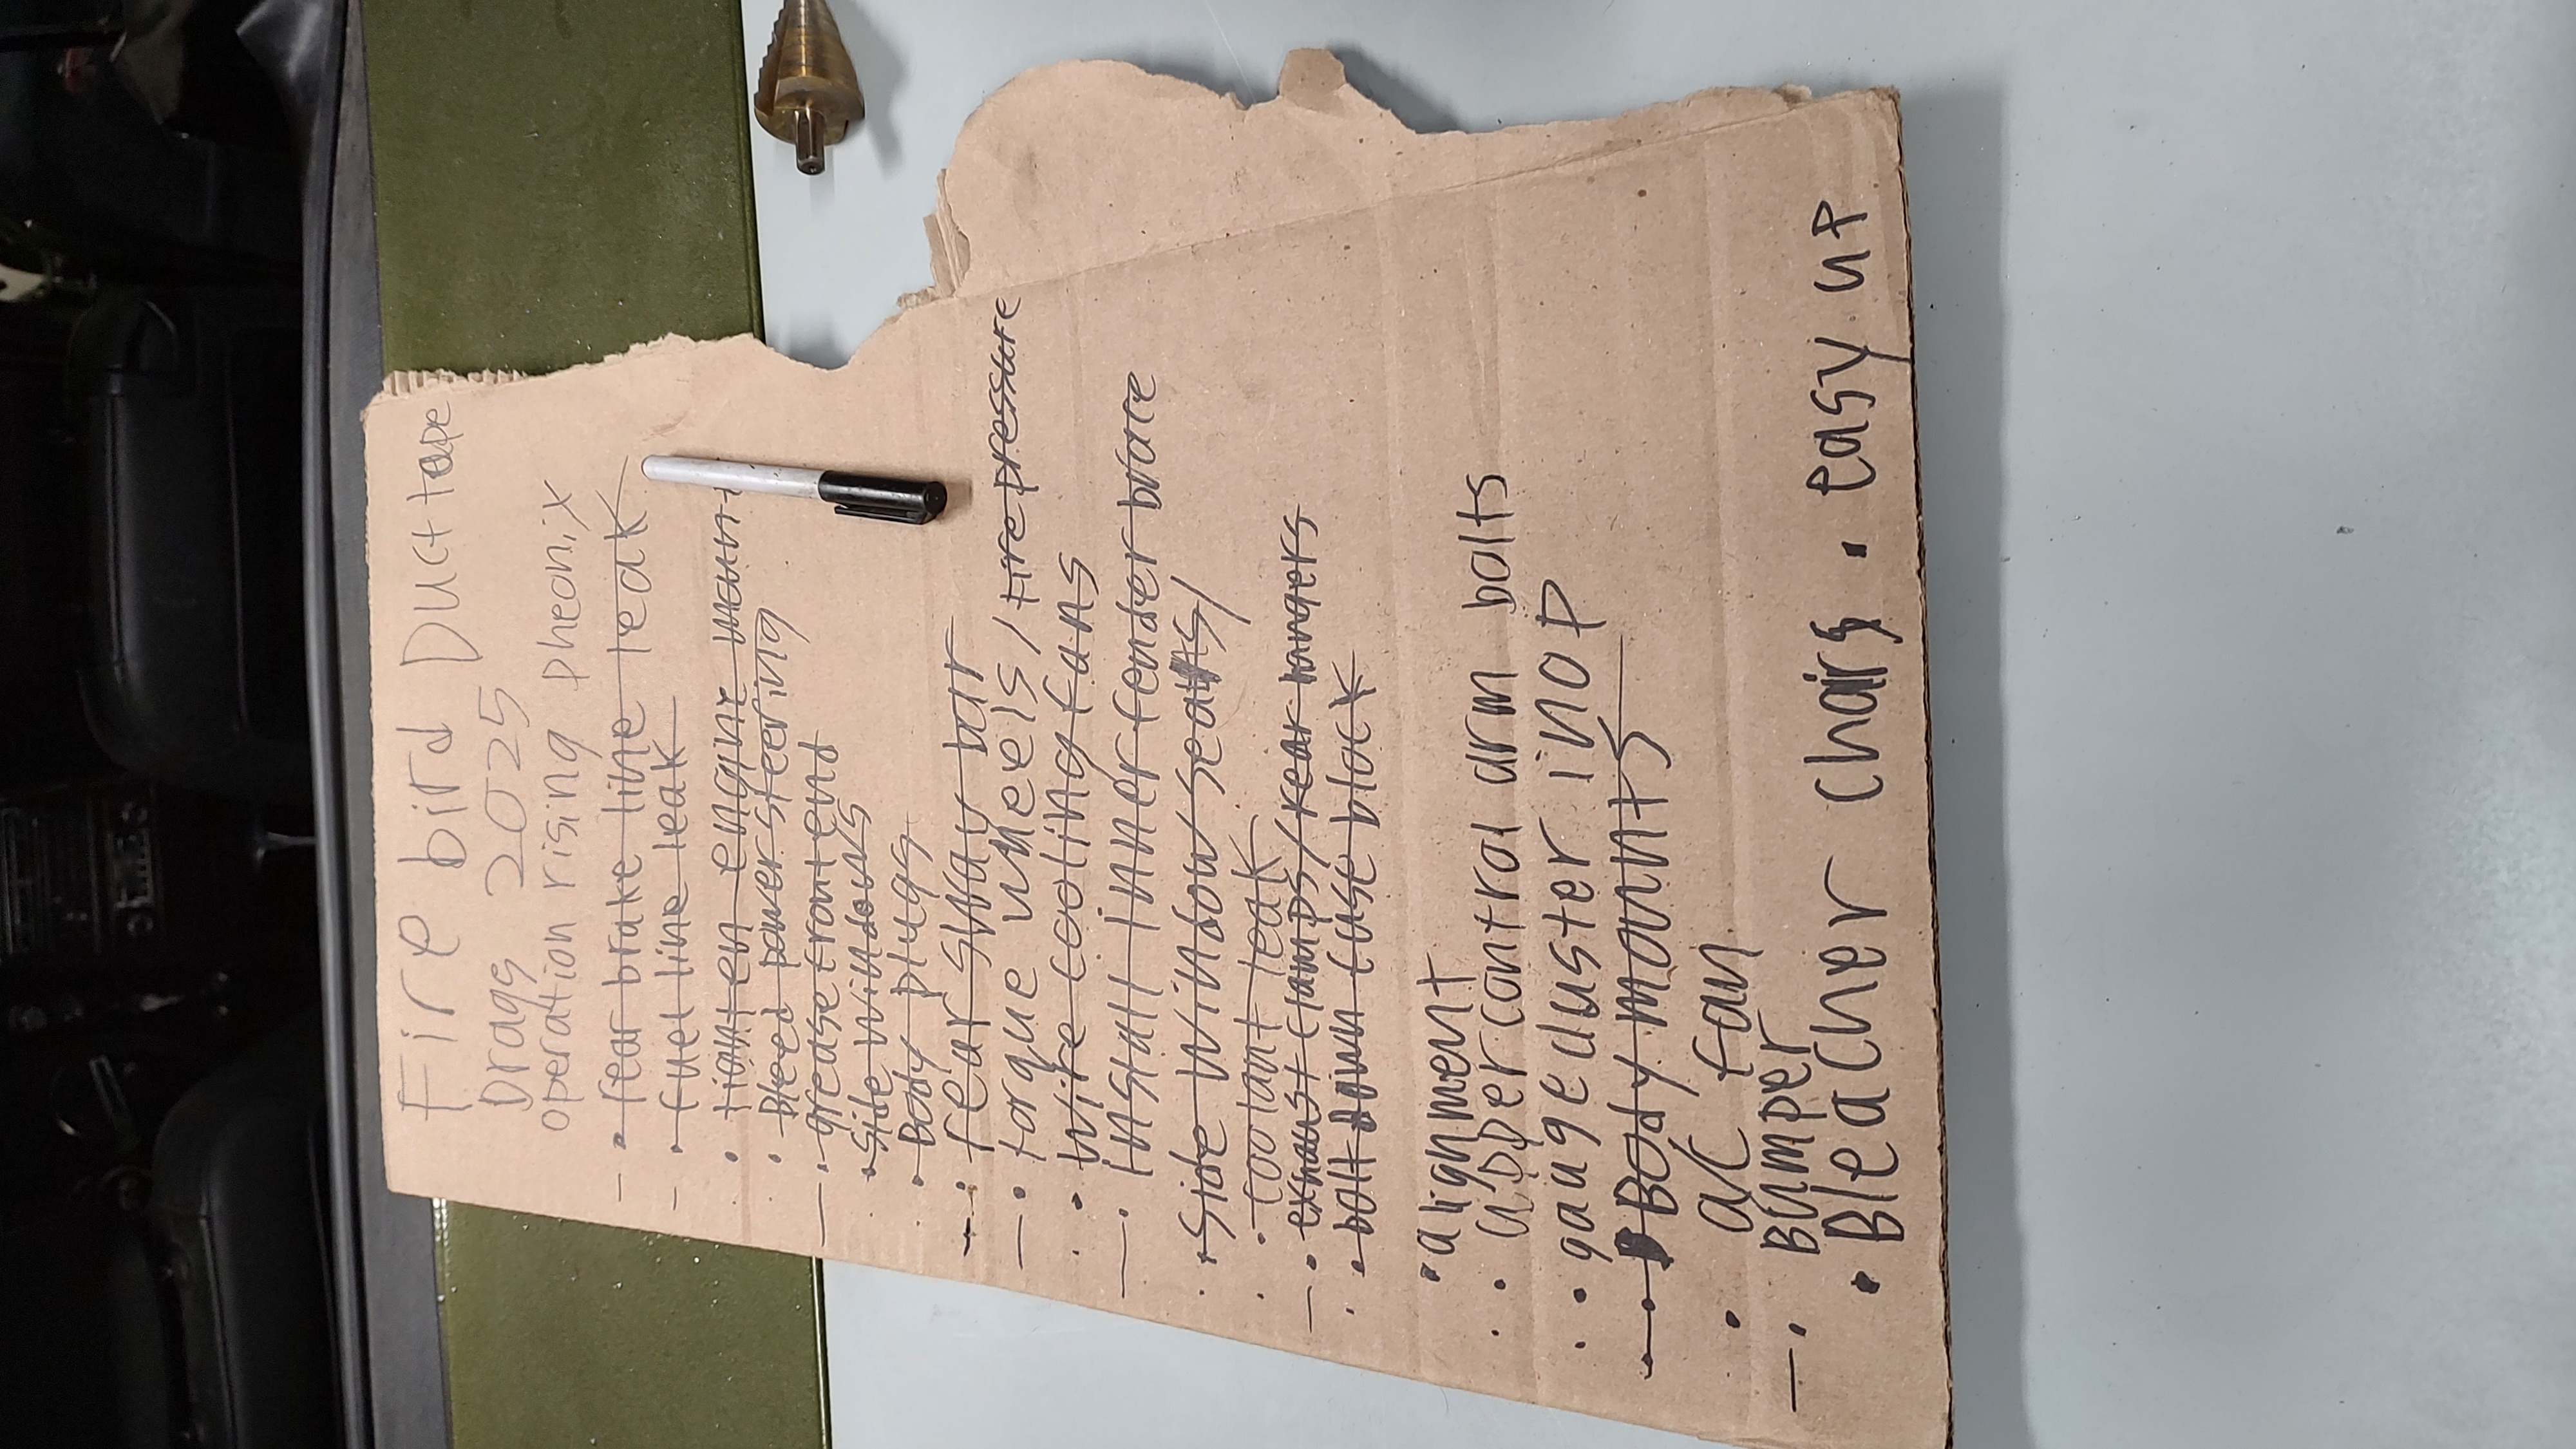 Fire bird Duct tape
Drags 2025
operation rising pheonix
- • rear brake line leak
- • fuel line leak
• tighten engine mount
• Bleed power steering
- • grease front end
• side windows
• Body plugs
- • rear sway bar
- • torque wheels / tire pressure
• wire cooling fans
- • install inner fender brace
• side window seals /
• coolant leak
- • exhaust clamps / rear hangers
• bolt down fuse block
• alignment
• upper control arm bolts
• gauge cluster inop
- • Body mounts
• a/c fan
- • Bumper
• Bleacher chairs • easy up